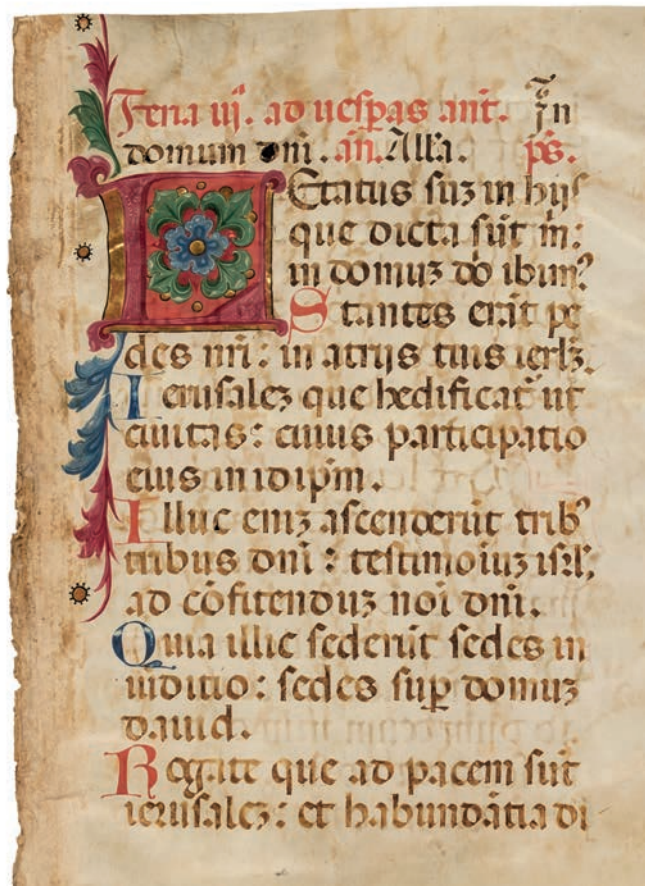 Feria iij. ad uesp̱as ant̄. Jn̄
domum dn̄i. an̄. All'a. ps̄.
LEtatus suʒ in hijs
que dicta sūt m̄:
in domuʒ dn̄ ibim⁹
Stantes erāt pe
des nr̄i: in atrijs tuis ierlʒ.
Ierusaleʒ que hedificat᷑ ut
ciuitas: cuius participatio
eius in idip̄m.
Illuc eniʒ ascenderūt trib⁹
tribus dn̄i: testimoiuʒ isrl̄;
ad cōfitenduʒ noı̄ dn̄i.
Quia illic sederūt sedes in
iuditio: sedes sup̱ domuʒ
dauid.
Rogate que ad pacem sūt
ierusaleʒ: et habundātia di